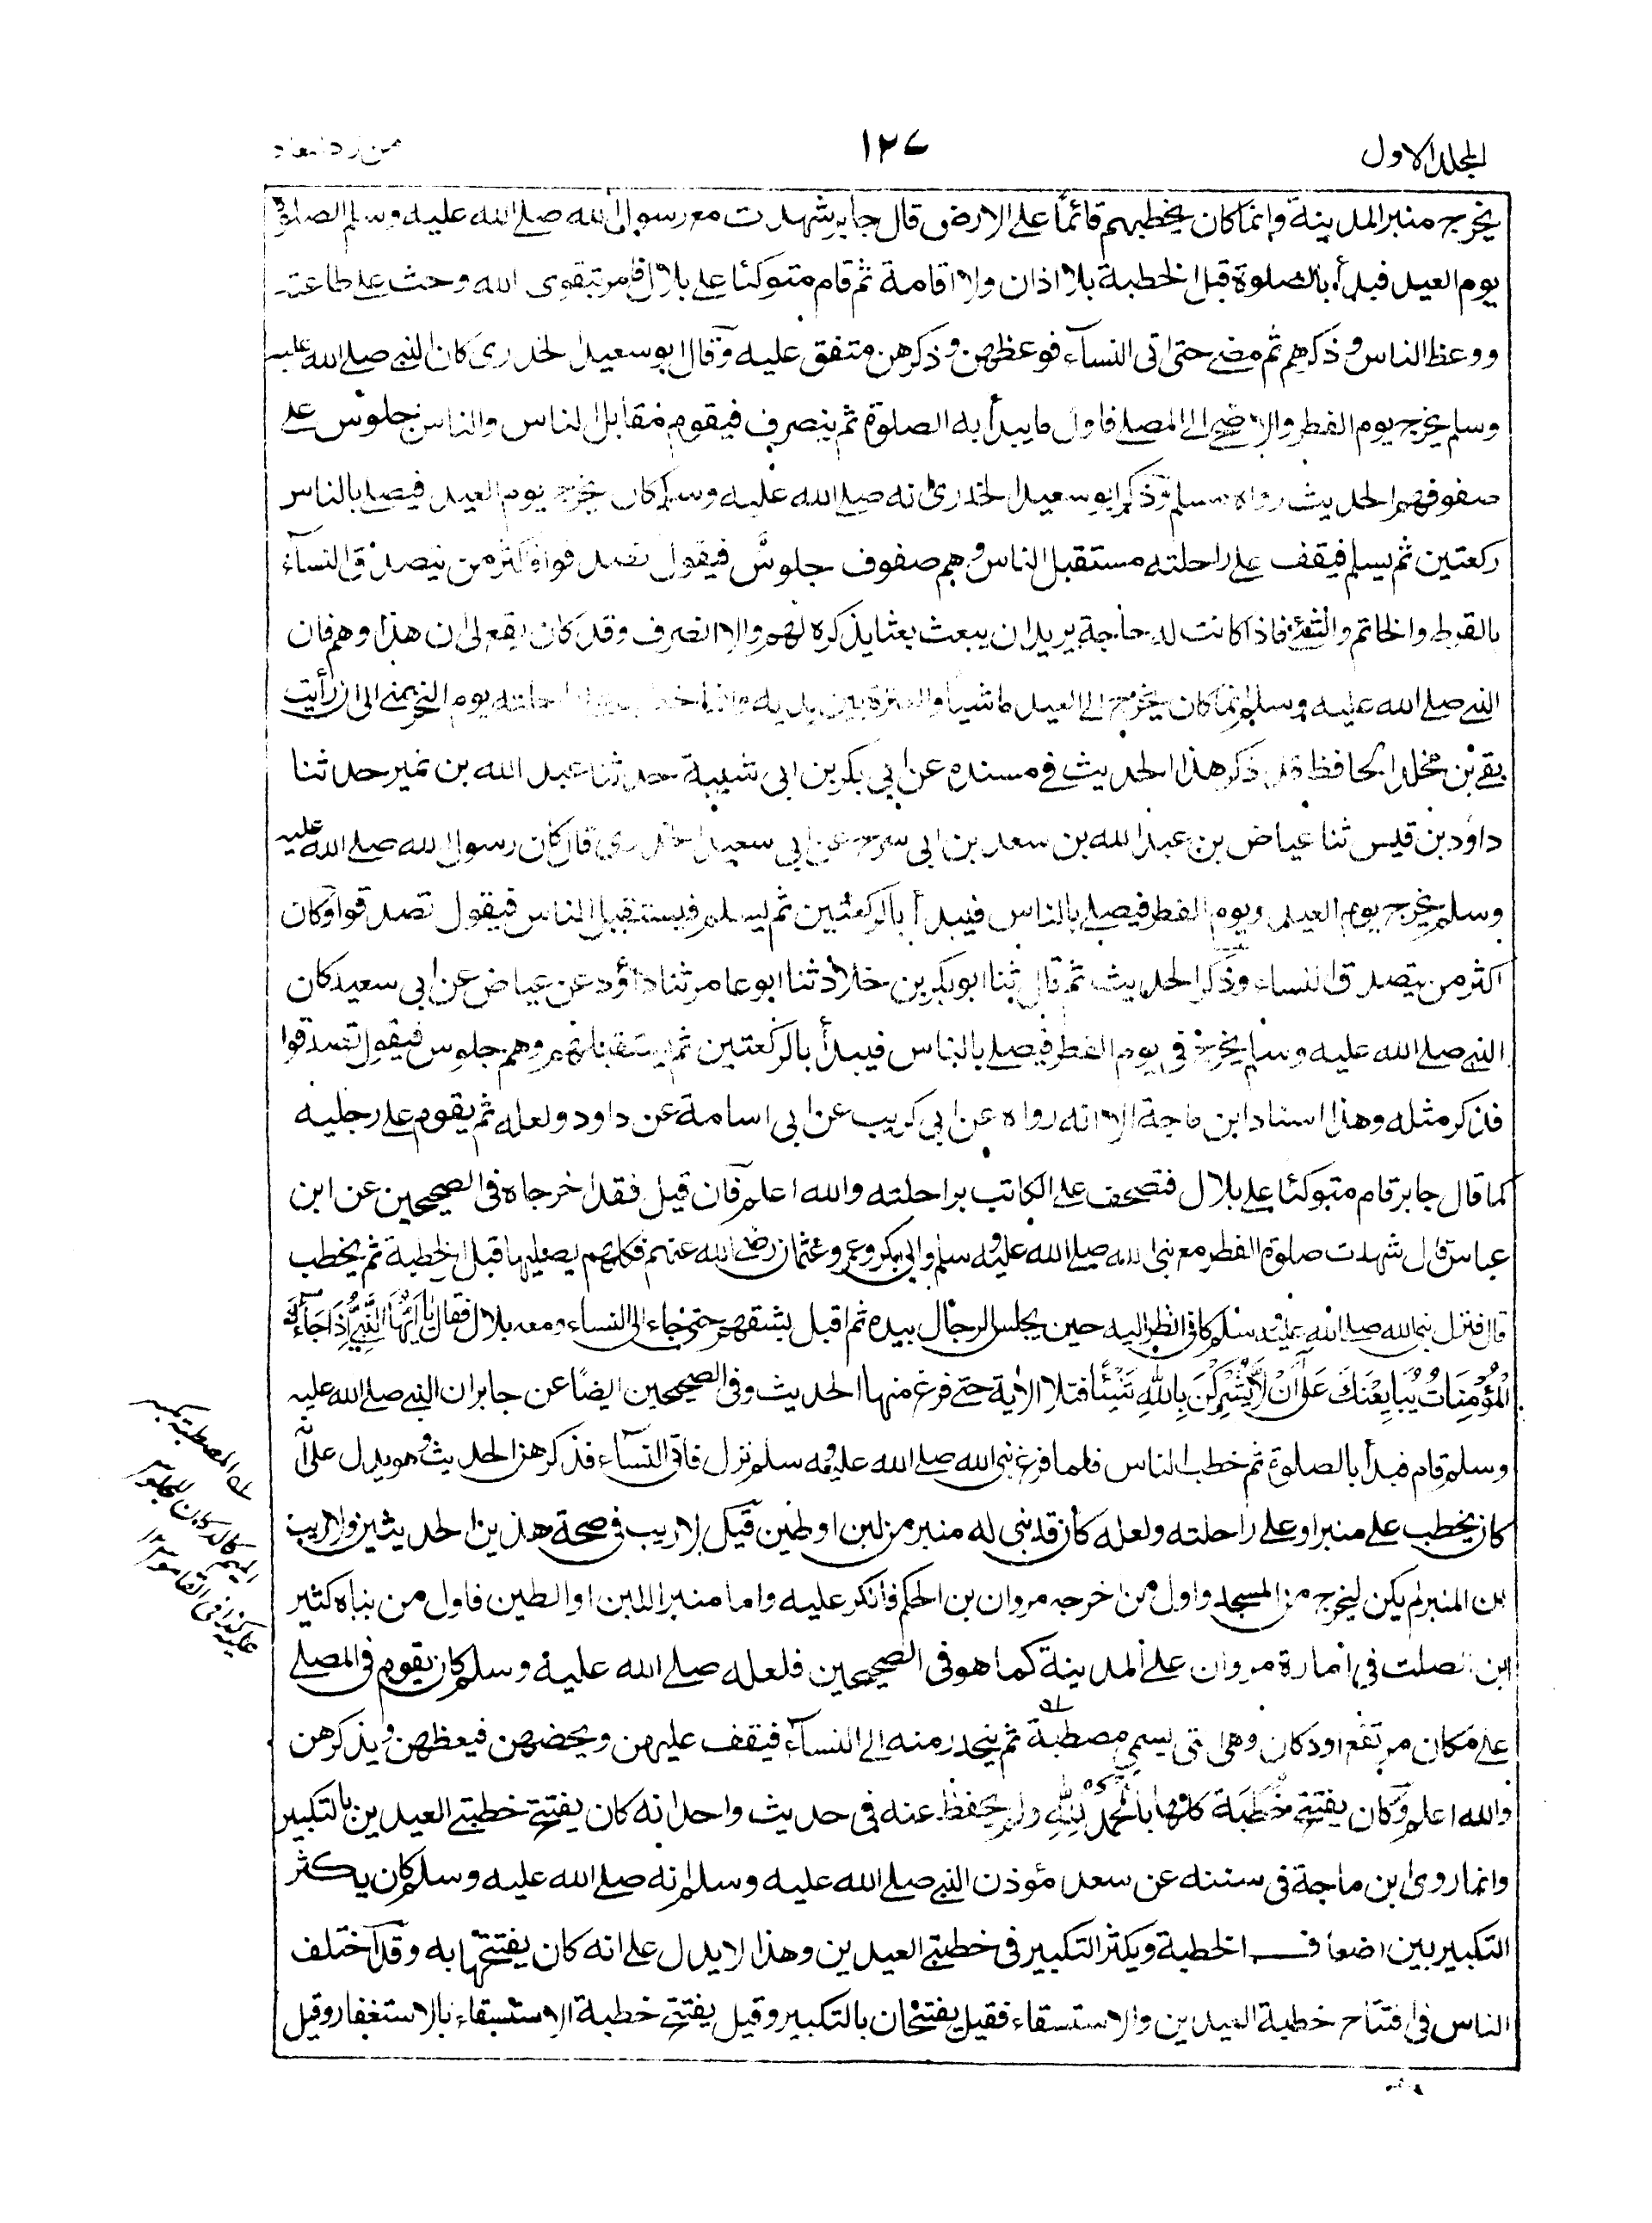 المجلد الاول
١٢٧
من زاد المعاد
يخرج منبر المدينة وانما كان يخطبهم قائماً على الارض قال جابر شهدت مع رسول الله صلى الله عليه وسلم الصلوة
يوم العيد فبدأ بالصلوة قبل الخطبة بلا اذان ولا اقامة ثم قام متوكئا على بلال فامر بتقوى الله وحث على طاعته
ووعظ الناس وذكرهم ثم مضى حتى اتى النسآء فوعظهن وذكرهن متفق عليه وقال ابو سعيد الخدرى كان النبى صلى الله عليه
وسلم يخرج يوم الفطر والاضحى الى المصلى فاول ما يبدأ به الصلوة ثم ينصرف فيقوم مقابل الناس والناس جلوس على
صفوفهم الحديث رواه مسلم وذكر ابو سعيد الخدرى انه صلى الله عليه وسلم كان يخرج يوم العيد فيصلى بالناس
ركعتين ثم يسلم فيقف على راحلته مستقبل الناس وهم صفوف جلوس فيقول تصدقوا فاكثر من يتصدق النسآء
بالقرط والخاتم والشئ فاذا كانت له حاجة يريد ان يبعث بعثا يذكره لهم والا انصرف وقد كان يقع لى ان هذا وهم فان
النبى صلى الله عليه وسلم انما كان يخرج الى العيد ماشيا والعنزة بين يديه وانما خطب على راحلته يوم النحر بمنى الى ان رأيت
بقى بن مخلد الحافظ قد ذكر هذا الحديث فى مسنده عن ابى بكر بن ابى شيبة حدثنا عبد الله بن نمير حدثنا
داود بن قيس ثنا عياض بن عبد الله بن سعد بن ابى سرح عن ابى سعيد الخدرى قال كان رسول الله صلى الله عليه
وسلم يخرج يوم العيد ويوم الفطر فيصلى بالناس فيبدأ بالركعتين ثم يسلم فيستقبل الناس فيقول تصدقوا وكان
اكثر من يتصدق النساء وذكر الحديث ثم قال ثنا ابو بكر بن خلاد ثنا ابو عامر ثنا داؤد عن عياض عن ابى سعيد كان
النبى صلى الله عليه وسلم يخرج فى يوم الفطر فيصلى بالناس فيبدأ بالركعتين ثم يستقبلهم وهم جلوس فيقول تصدقوا
فذكر مثله وهذا اسناد ابن ماجة الا انه رواه عن ابى كريب عن ابى اسامة عن داود ولعله ثم يقوم على رجليه
كما قال جابر قام متوكئا على بلال فتصحف على الكاتب براحلته والله اعلم فان قيل فقد اخرجاه فى الصحيحين عن ابن
عباس قال شهدت صلوة الفطر مع نبى الله صلى الله عليه وسلم وابى بكر وعمر وعثمان رضى الله عنهم فكلهم يصليها قبل الخطبة ثم يخطب
قال فنزل نبى الله صلى الله عليه وسلم كانى انظر اليه حين يجلس الرجال بيده ثم اقبل يشقهم حتى جاء الى النساء ومعه بلال فقال يٰٓاَيُّهَا النَّبِىُّ اِذَا جَآءَكَ
الْمُؤْمِنَاتُ يُبَايِعْنَكَ عَلٰى اَنْ لَّا يُشْرِكْنَ بِاللّٰهِ شَيْئًا فتلا الاية حتى فرغ منها الحديث وفى الصحيحين ايضًا عن جابر ان النبى صلى الله عليه
وسلم قام فبدأ بالصلوة ثم خطب الناس فلما فرغ نبى الله صلى الله عليه وسلم نزل فاتى النسآء فذكرهن الحديث وهو يدل على انه
كان يخطب على منبر او على راحلته ولعله كان قد بنى له منبر من لبن او طين قيل لا ريب فى صحة هذين الحديثين ولا ريب
ان المنبر لم يكن ليخرج من المسجد واول من اخرجه مروان بن الحكم فانكر عليه واما منبر اللبن او الطين فاول من بناه كثير
ابن الصلت فى امارة مروان على المدينة كما هو فى الصحيحين فلعله صلى الله عليه وسلم كان يقوم فى المصلى
على مكان مرتفع او دكان وهى التى يسمى مصطبة ثم ينحدر منه الى النسآء فيقف عليهن ويخطبهن فيعظهن ويذكرهن
والله اعلم وكان يفتتح خُطَبَه كلها بالحمد لِلّٰهِ ولم يحفظ عنه فى حديث واحد انه كان يفتتح خطبتى العيدين بالتكبير
وانما روى ابن ماجة فى سننه عن سعد مؤذن النبى صلى الله عليه وسلم انه صلى الله عليه وسلم كان يكثر
التكبير بين اضعاف الخطبة ويكثر التكبير فى خطبتى العيدين وهذا لا يدل على انه كان يفتتحها به وقد اختلف
الناس فى افتتاح خطبة العيدين والاستسقاء فقيل يفتتحان بالتكبير وقيل يفتتح خطبة الاستسقاء بالاستغفار وقيل
له المصطبة بكسر
الميم كالدكان للجلوس
عليه كذا فى القاموس ١٢